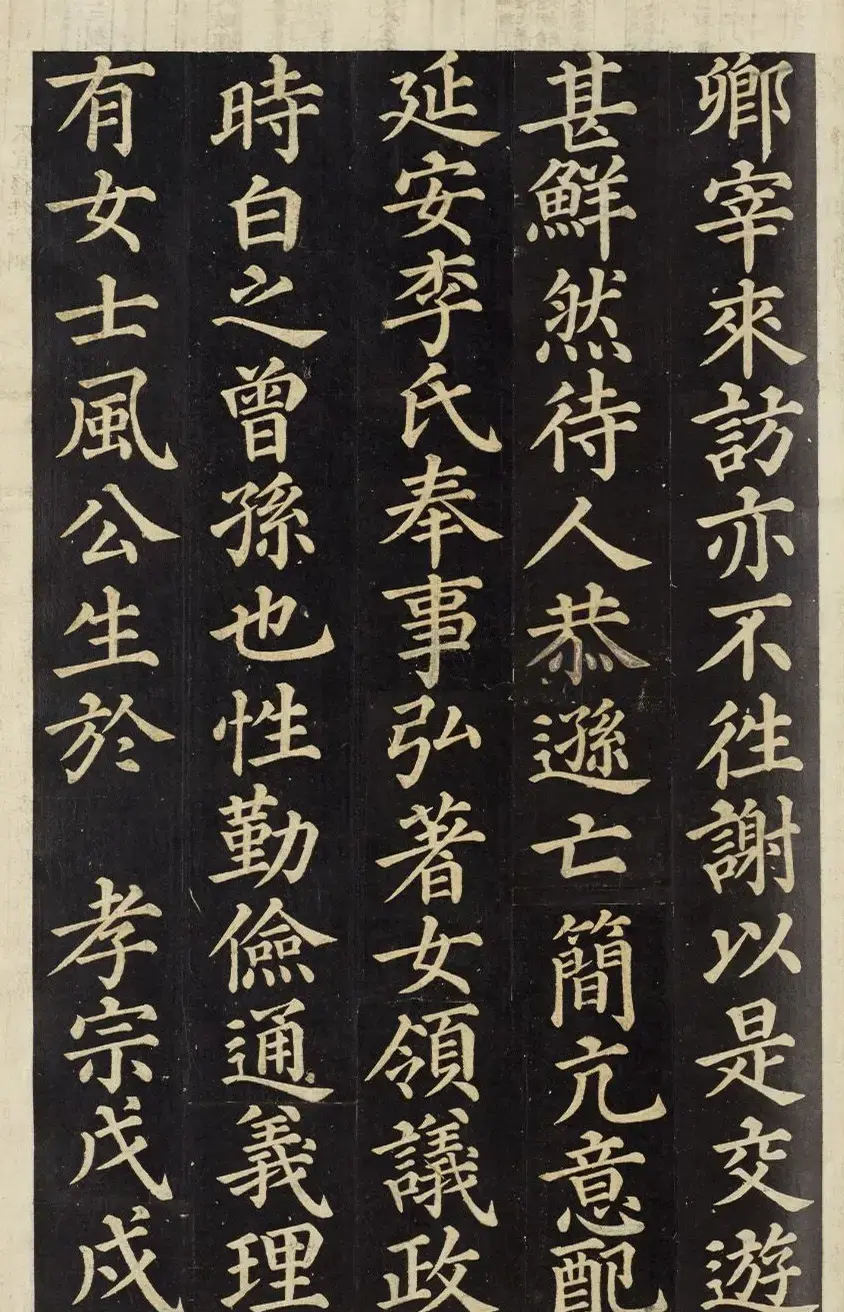 卿宰來訪亦不徃謝以是交遊
甚鮮然待人恭遜亡簡亢意配
延安李氏奉事弘著女領議政
時白之曾孫也性勤儉通義理
有女士風公生於 孝宗戊戌